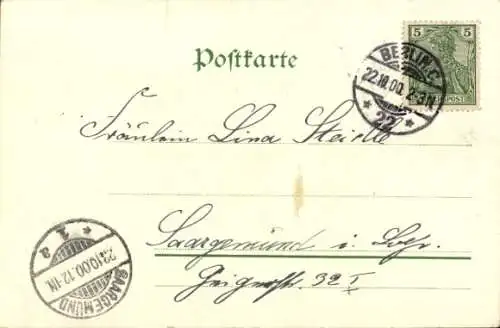 Postkarte
5
REICHSPOST
BERLIN.C.
22.10.00. 2-3N.
* 22 *
Fräulein Lina
Saargemünd i. Lothr.
32 I
* 1 a
23.10.00.12-1N.
SAARGEMÜND